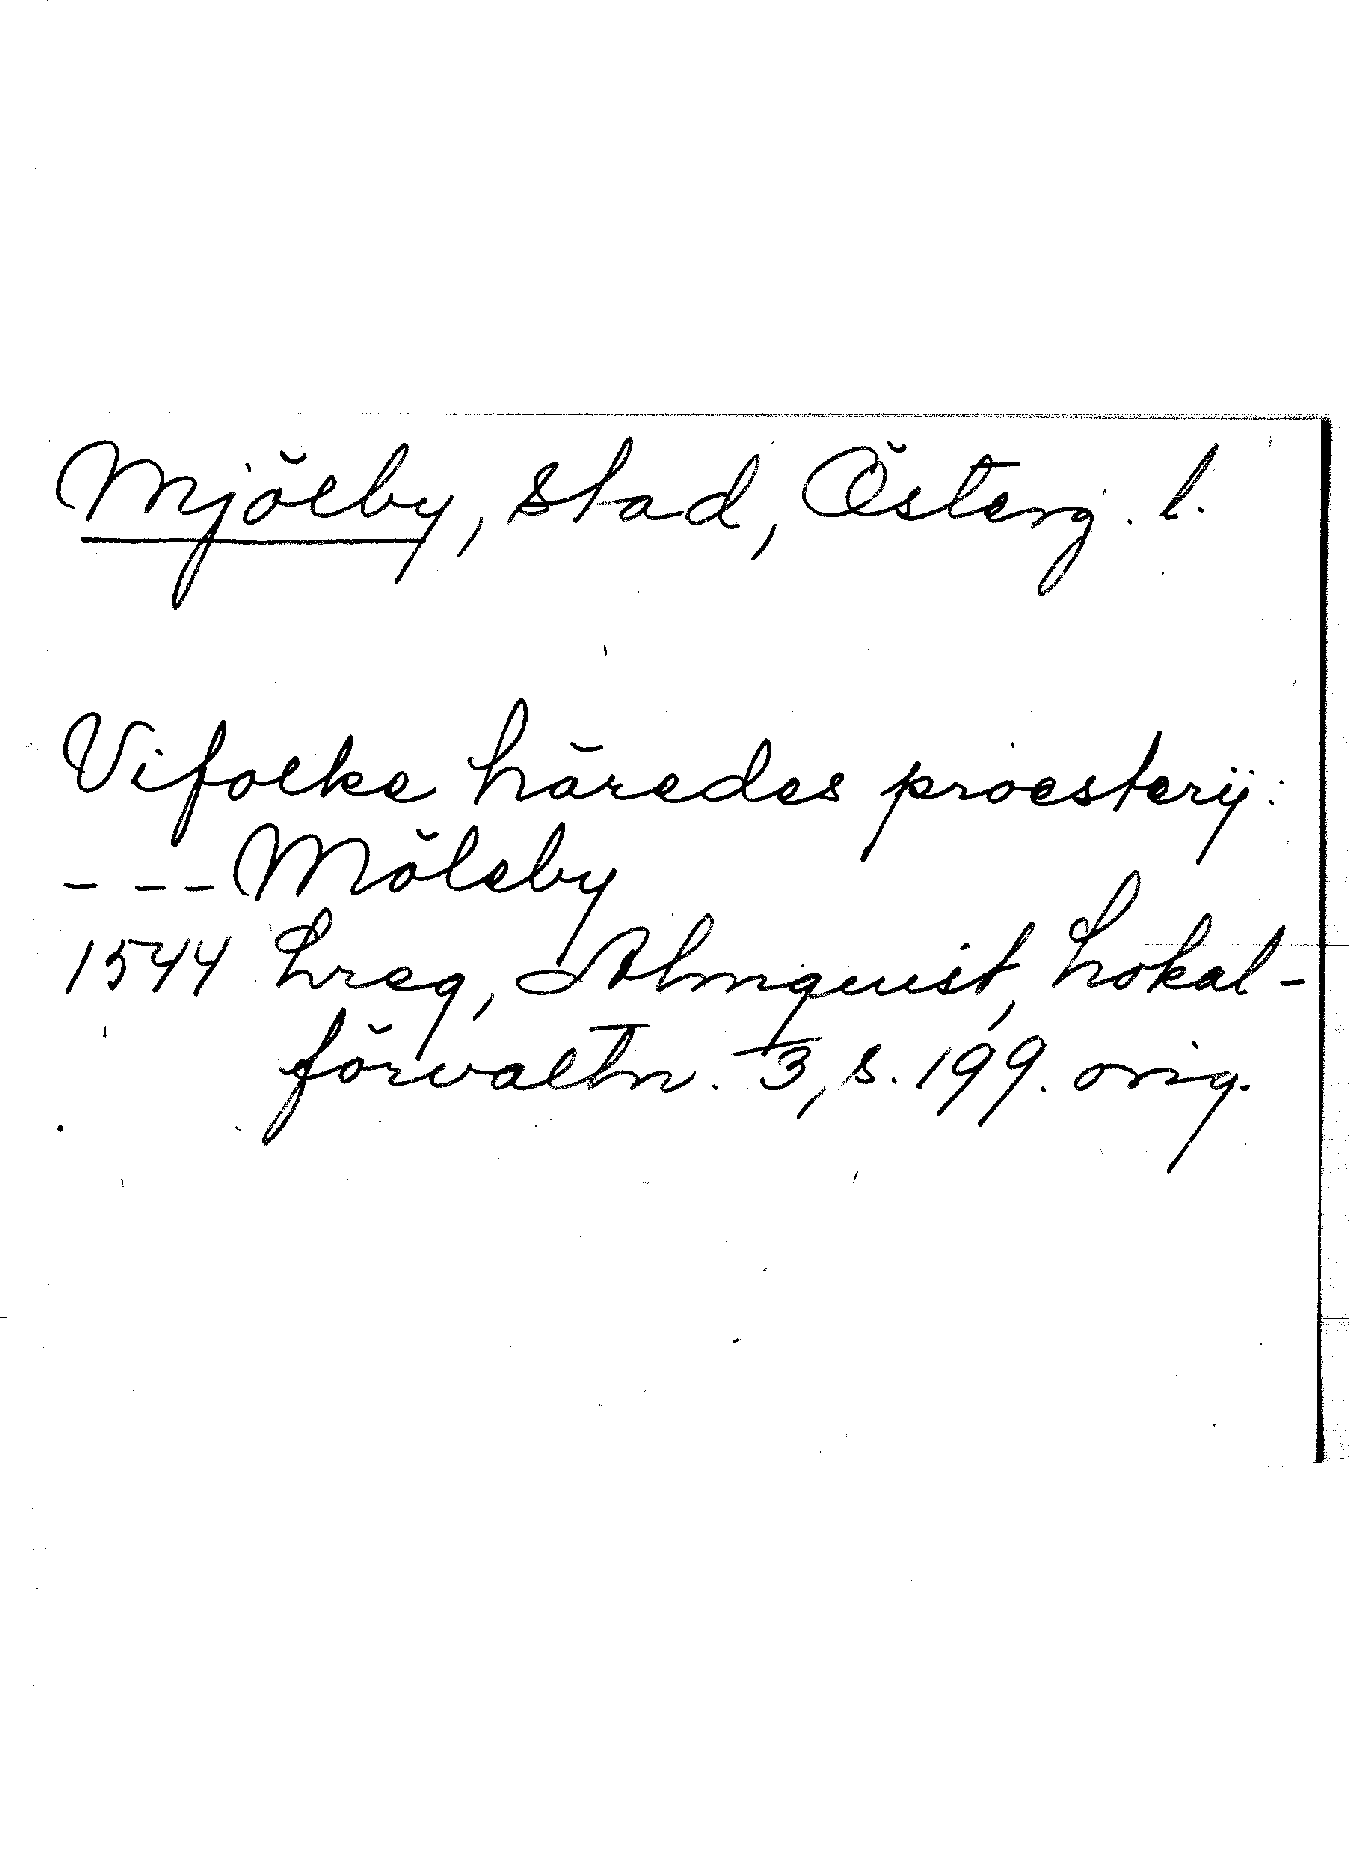 Mjölby, stad, Österg. l.
Vifolke häredes proesterij:
- - - Möleby
1544 Lreg, Almquist, Lokal-
förvaltn. 3, s. 199. orig.